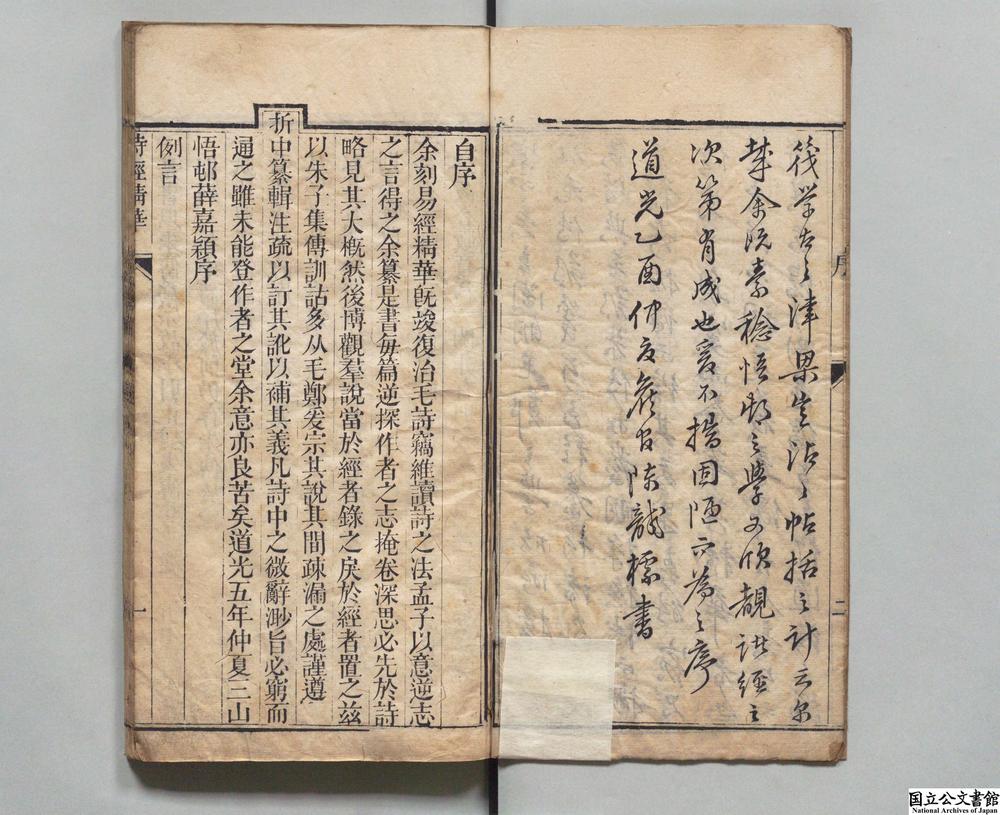 筏學古之津梁豈沾沾帖括之計云爾
哉余既素稔悟邨之學又欣覩諸經之
次第肖成也爰不揣固陋而為之序
道光乙酉仲夏
書
序
二
自序
余刻易經精華旣竣復治毛詩竊維讀詩之法孟子以意逆志
之言得之余纂是書每篇逆探作者之志掩卷深思必先於詩
略見其大槪然後博觀羣說當於經者錄之戾於經者置之玆
以朱子集傳訓詁多从毛鄭爰宗其說其間疎漏之處謹遵
折中纂輯注疏以訂其訛以補其義凡詩中之微辭渺旨必窮而
通之雖未能登作者之堂余意亦良苦矣道光五年仲夏二山
悟邨薛嘉穎序
例言
詩經精華
一
国立公文書館
National Archives of Japan